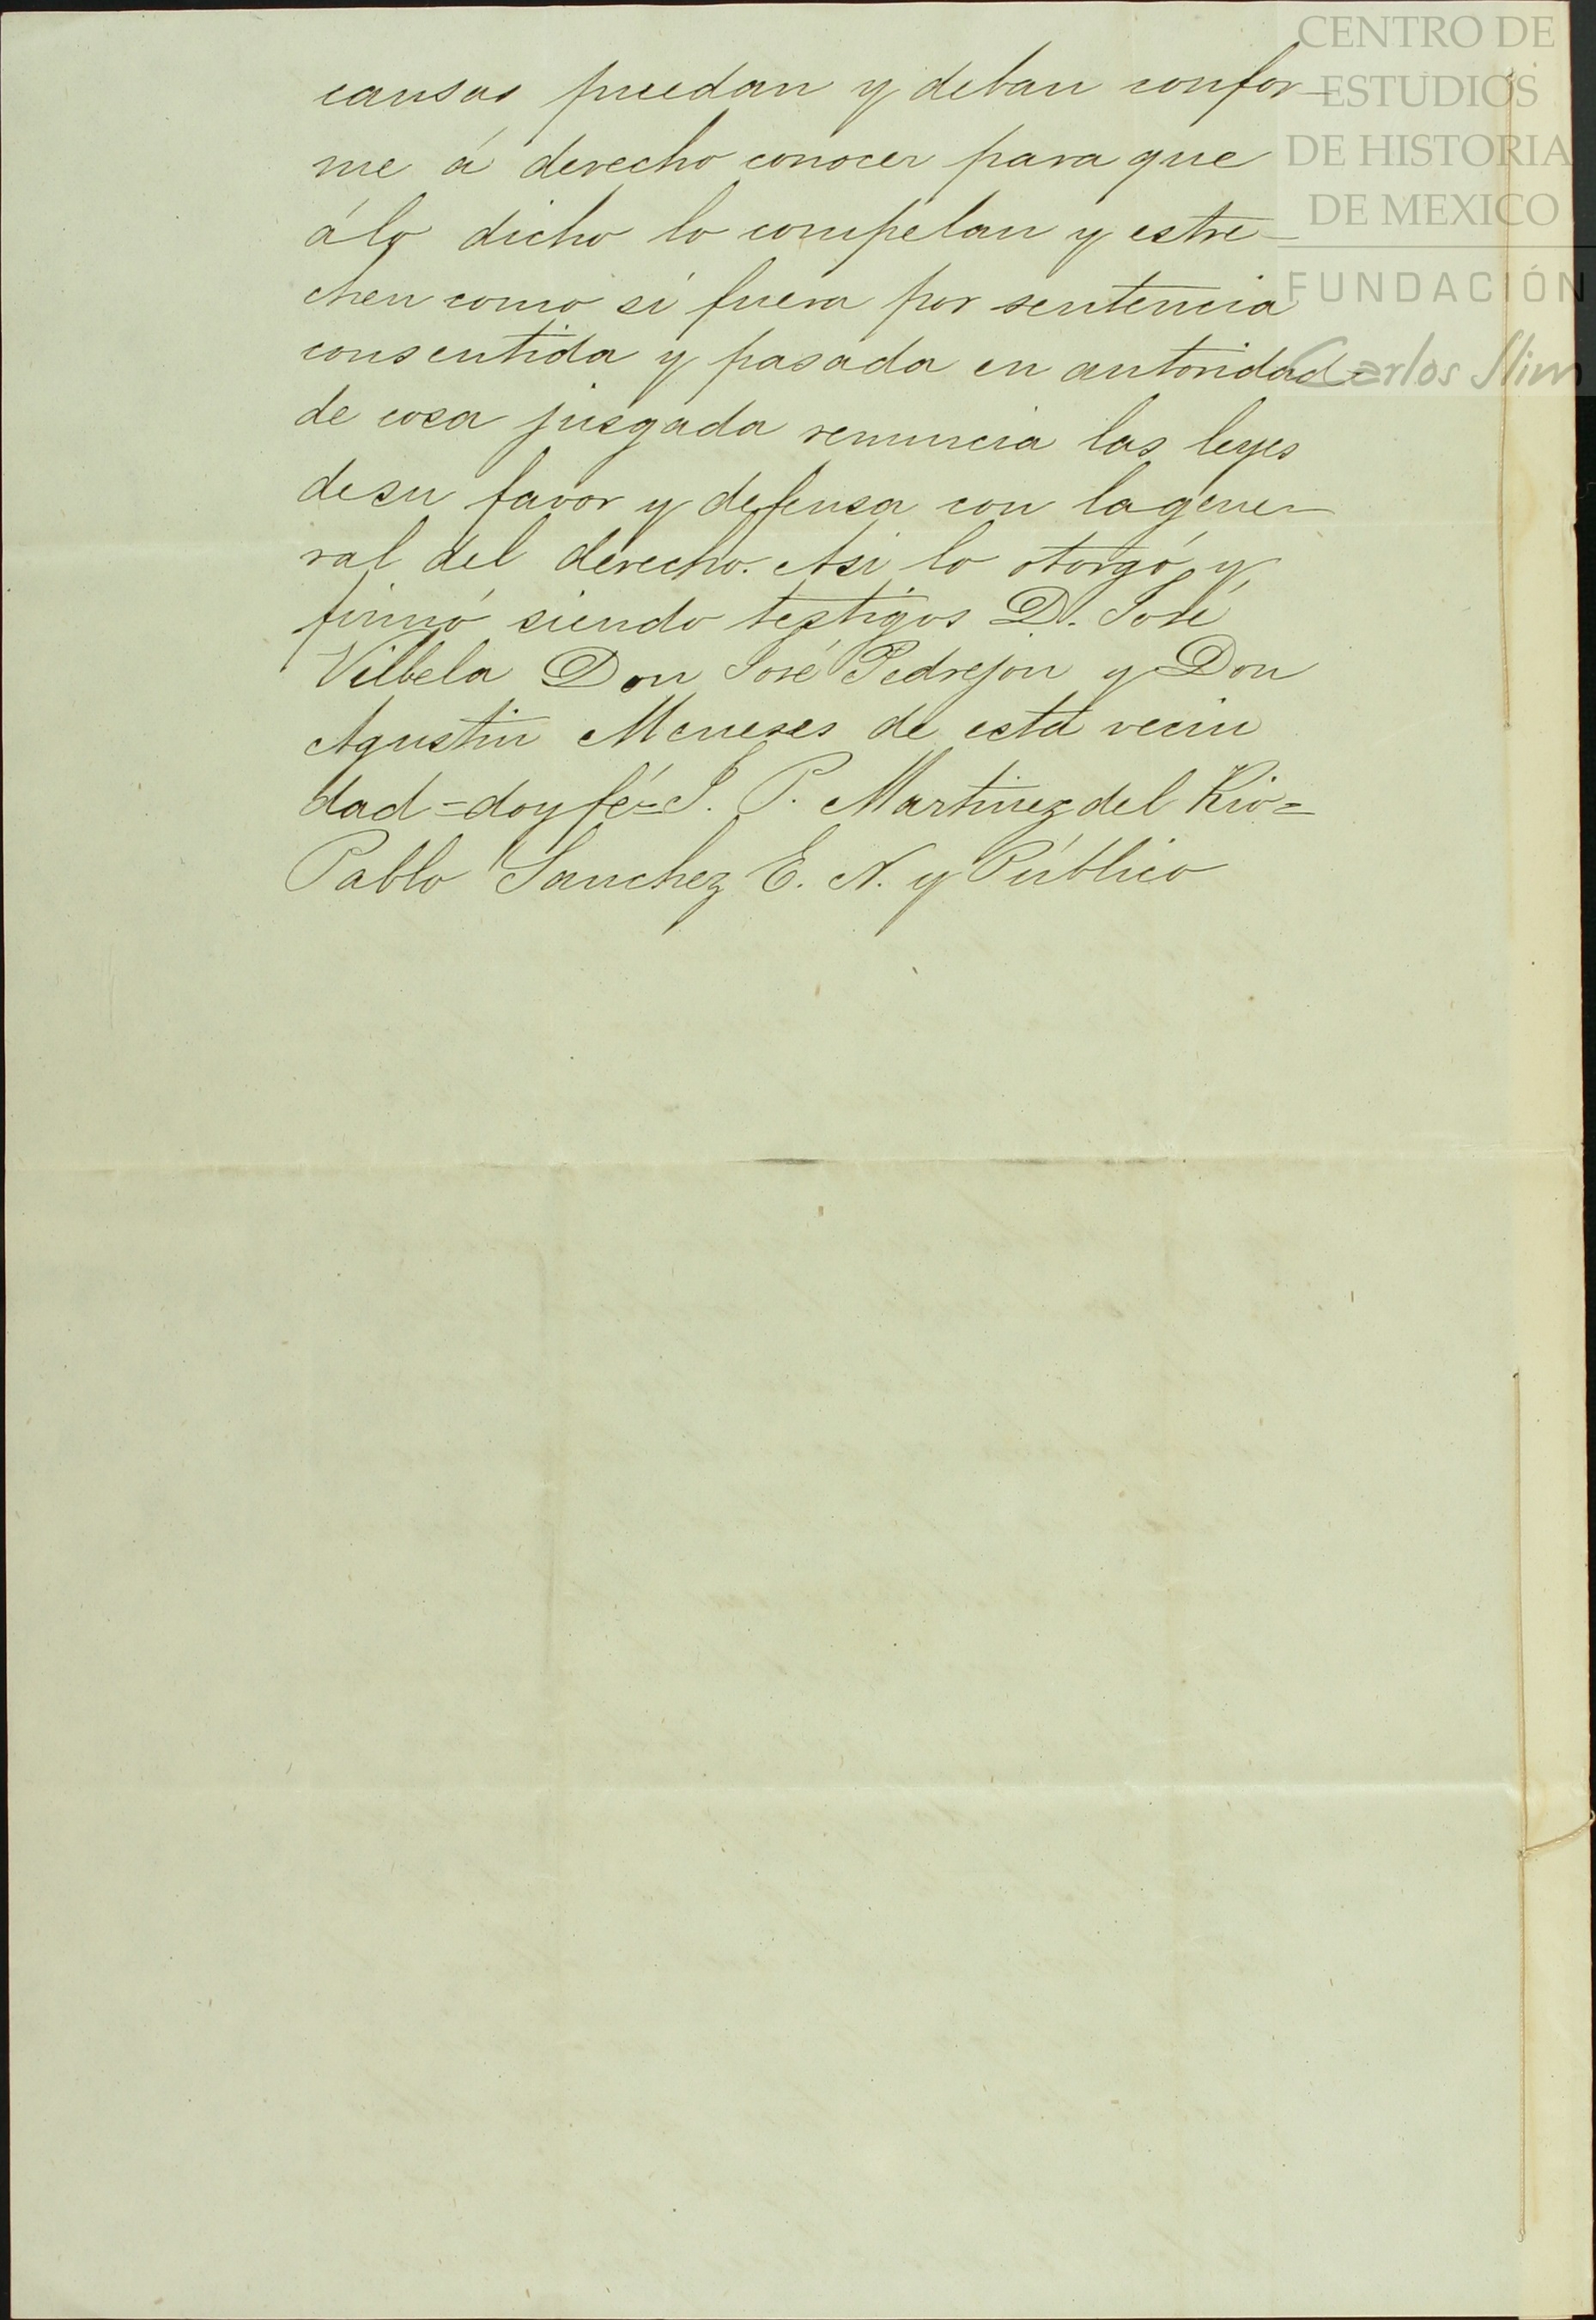 CENTRO DE
ESTUDIOS
DE HISTORIA
DE MEXICO
FUNDACIÓN
Carlos Slim
causas puedan y deban confor-
me á derecho conocer para que
álo dicho lo compelan y estre-
chen como si fuera por sentencia
consentida y pasada en autoridad
de cosa jusgada renuncia las leyes
desu favor y defensa con lagene-
ral del derecho. Asi lo otorgó y
firmó siendo testigos D. José
Vilbela Don José Pedrejon y Don
Agustin Meneses de esta vecin
dad = doy fé = J. P. Martinez del Rio =
Pablo Sanchez E. N. y Público